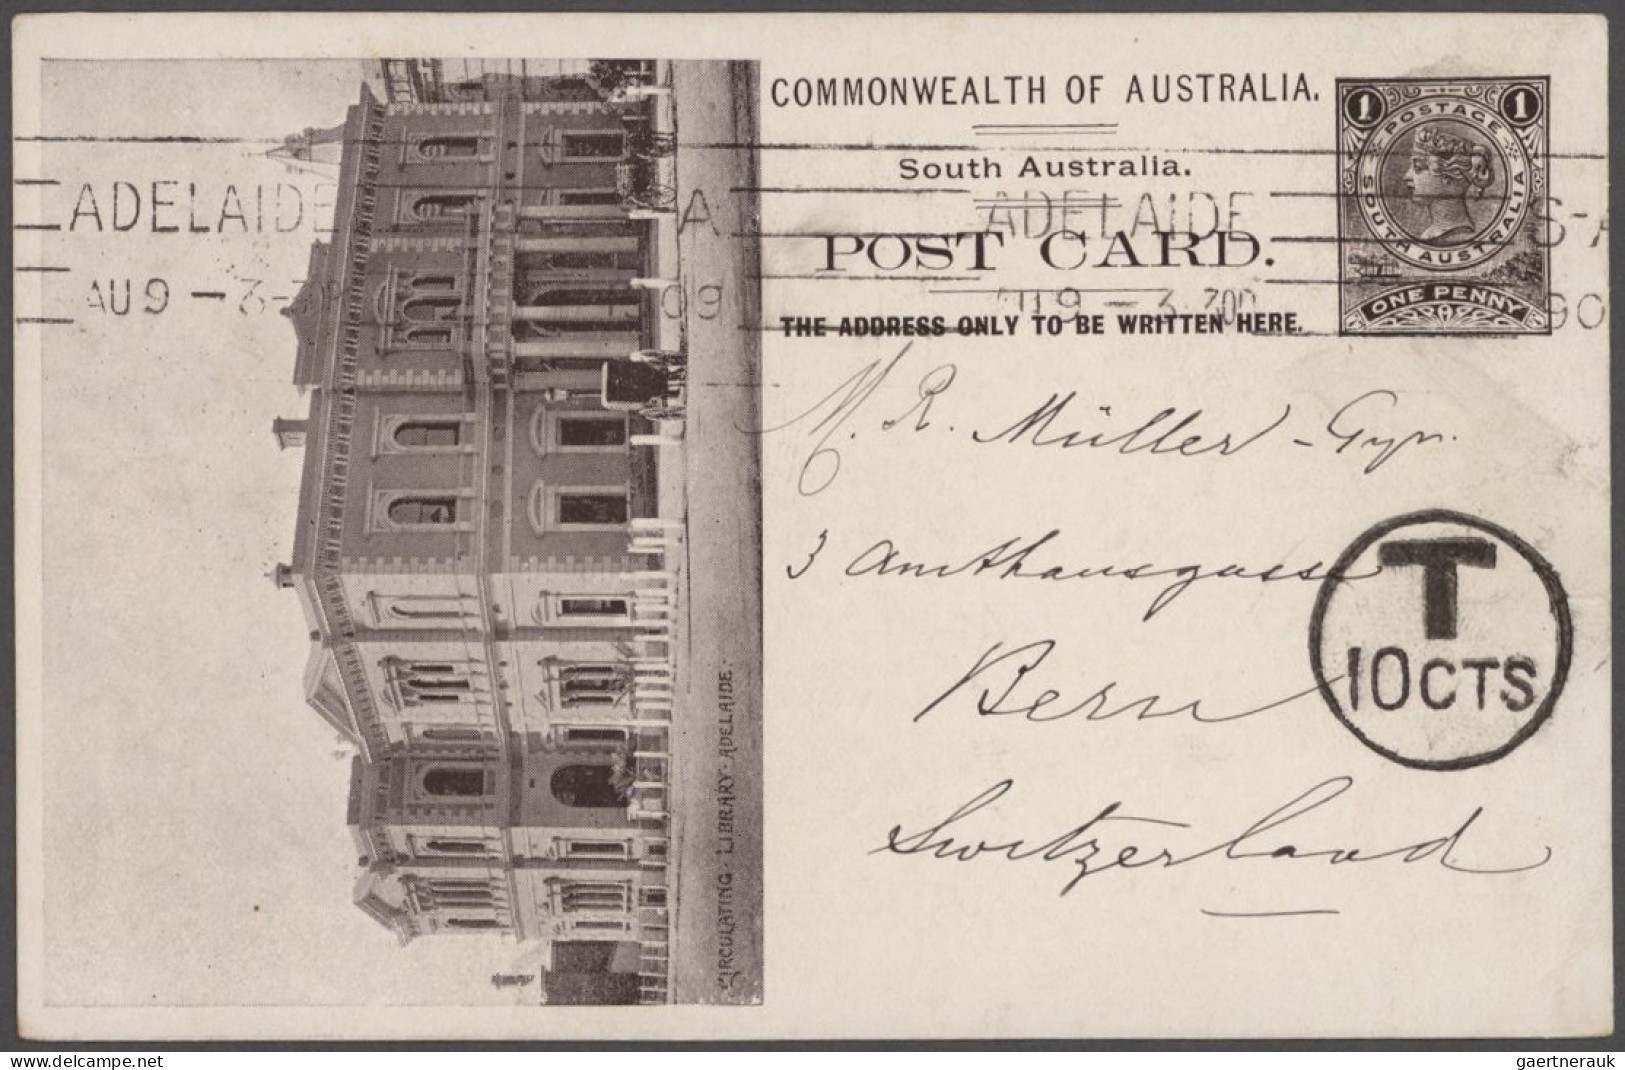 COMMONWEALTH OF AUSTRALIA.
South Australia.
POST CARD.
THE ADDRESS ONLY TO BE WRITTEN HERE.
1 POSTAGE 1
SOUTH AUSTRALIA
ONE PENNY
ADELAIDE
AU 9 - 3-30
A
09
ADELAIDE S-A
AU 9 - 3 30P 90
M. R. Müller - Gyr.
3 Amthausgasse
Bern
Switzerland
T
10 CTS
CIRCULATING · LIBRARY · ADELAIDE.
www.delcampe.net
gaertnerauk